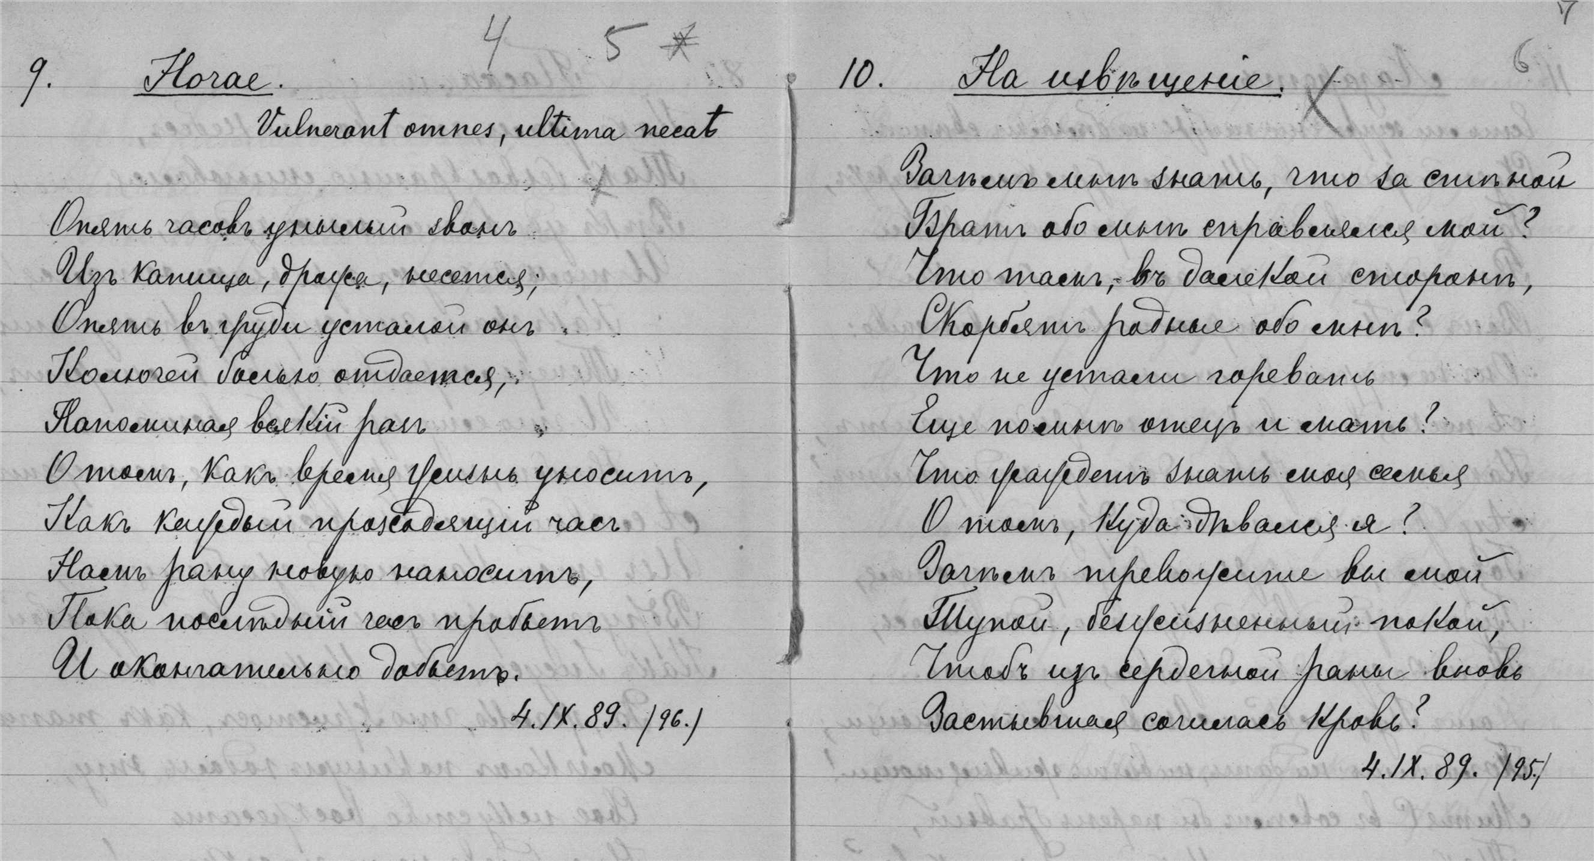 4 5
9. Horae.
Vulnerant omnes, ultima necat
Опять часовъ унылый звонъ
Изъ капища, друзья, несется;
Опять въ груди усталой онъ
Колючей болью отдается,
Напоминая всякій разъ
О томъ, какъ время жизнь уноситъ,
Какъ каждый проходящій часъ
Намъ рану новую наноситъ,
Пока послѣдній часъ пробьетъ
И окончательно добьетъ.
4.IX.89. /96./
7
6
10. На извѣщеніе.
Зачѣмъ мнѣ знать, что за стѣной
Братъ обо мнѣ справлялся мой?
Что тамъ, въ далекой сторонѣ,
Скорбятъ родные обо мнѣ?
Что не устали горевать
Еще по мнѣ отецъ и мать?
Что жаждетъ знать моя семья
О томъ, куда дѣвался я?
Зачѣмъ тревожите вы мой
Тупой, безжизненный покой,
Чтобъ изъ сердечной раны вновь
Застывшая сочилась кровь?
4.IX.89. /95./